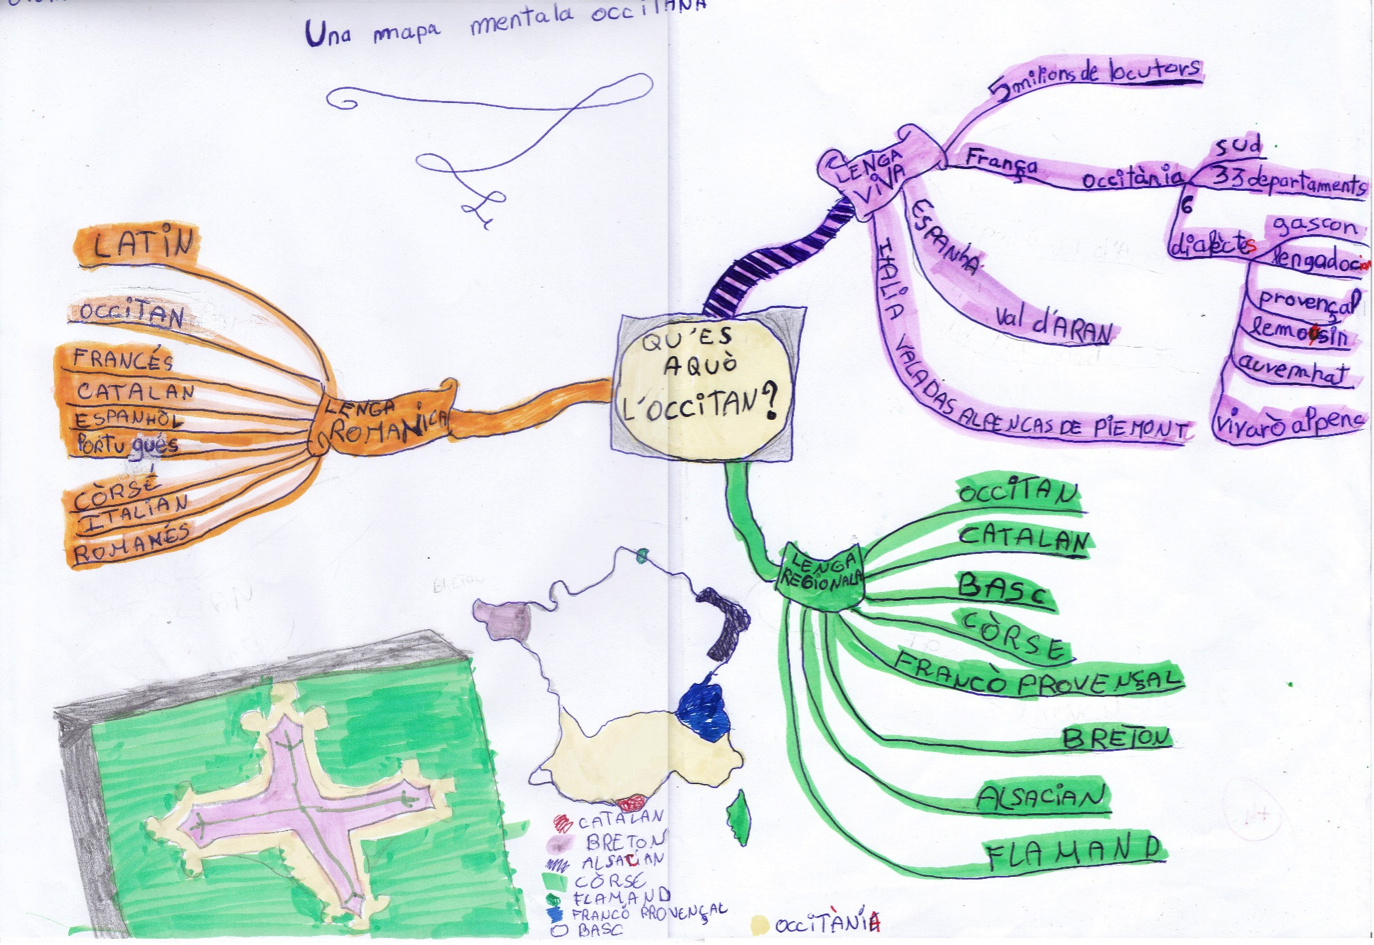 Una mapa mentala occiTANA
QU'ES
AQUÒ
L'OCCITAN?
LENGA
ROMANICA
LATIN
OCCITAN
FRANCÉS
CATALAN
ESPANHÒL
Portugués
CÒRSE
ITALIAN
ROMANÉS
LENGA
VIVA
5 milions de locutors
França
occitània
sud
33 departaments
6
dialèctes
gascon
lengadocian
provençal
lemosin
auvernhat
vivaro alpenc
ESPANHA
Val d'ARAN
ITALIA VALADAS ALPENCAS DE PIEMONT
LENGA
REGIONALA
OCCITAN
CATALAN
BASC
CÒRSE
FRANCÒ PROVENÇAL
BRETON
ALSACIAN
FLAMAND
CATALAN
BRETON
ALSACIAN
CÒRSE
FLAMAND
FRANCÒ PROVENÇAL
BASC
OCCITÀNIA